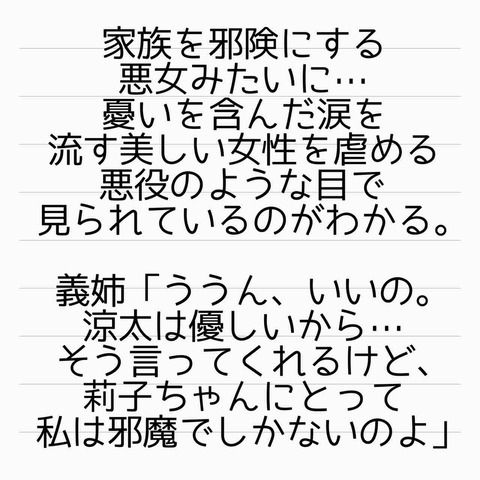 家族を邪険にする
悪女みたいに…
憂いを含んだ涙を
流す美しい女性を虐める
悪役のような目で
見られているのがわかる。
義姉「ううん、いいの。
涼太は優しいから…
そう言ってくれるけど、
莉子ちゃんにとって
私は邪魔でしかないのよ」